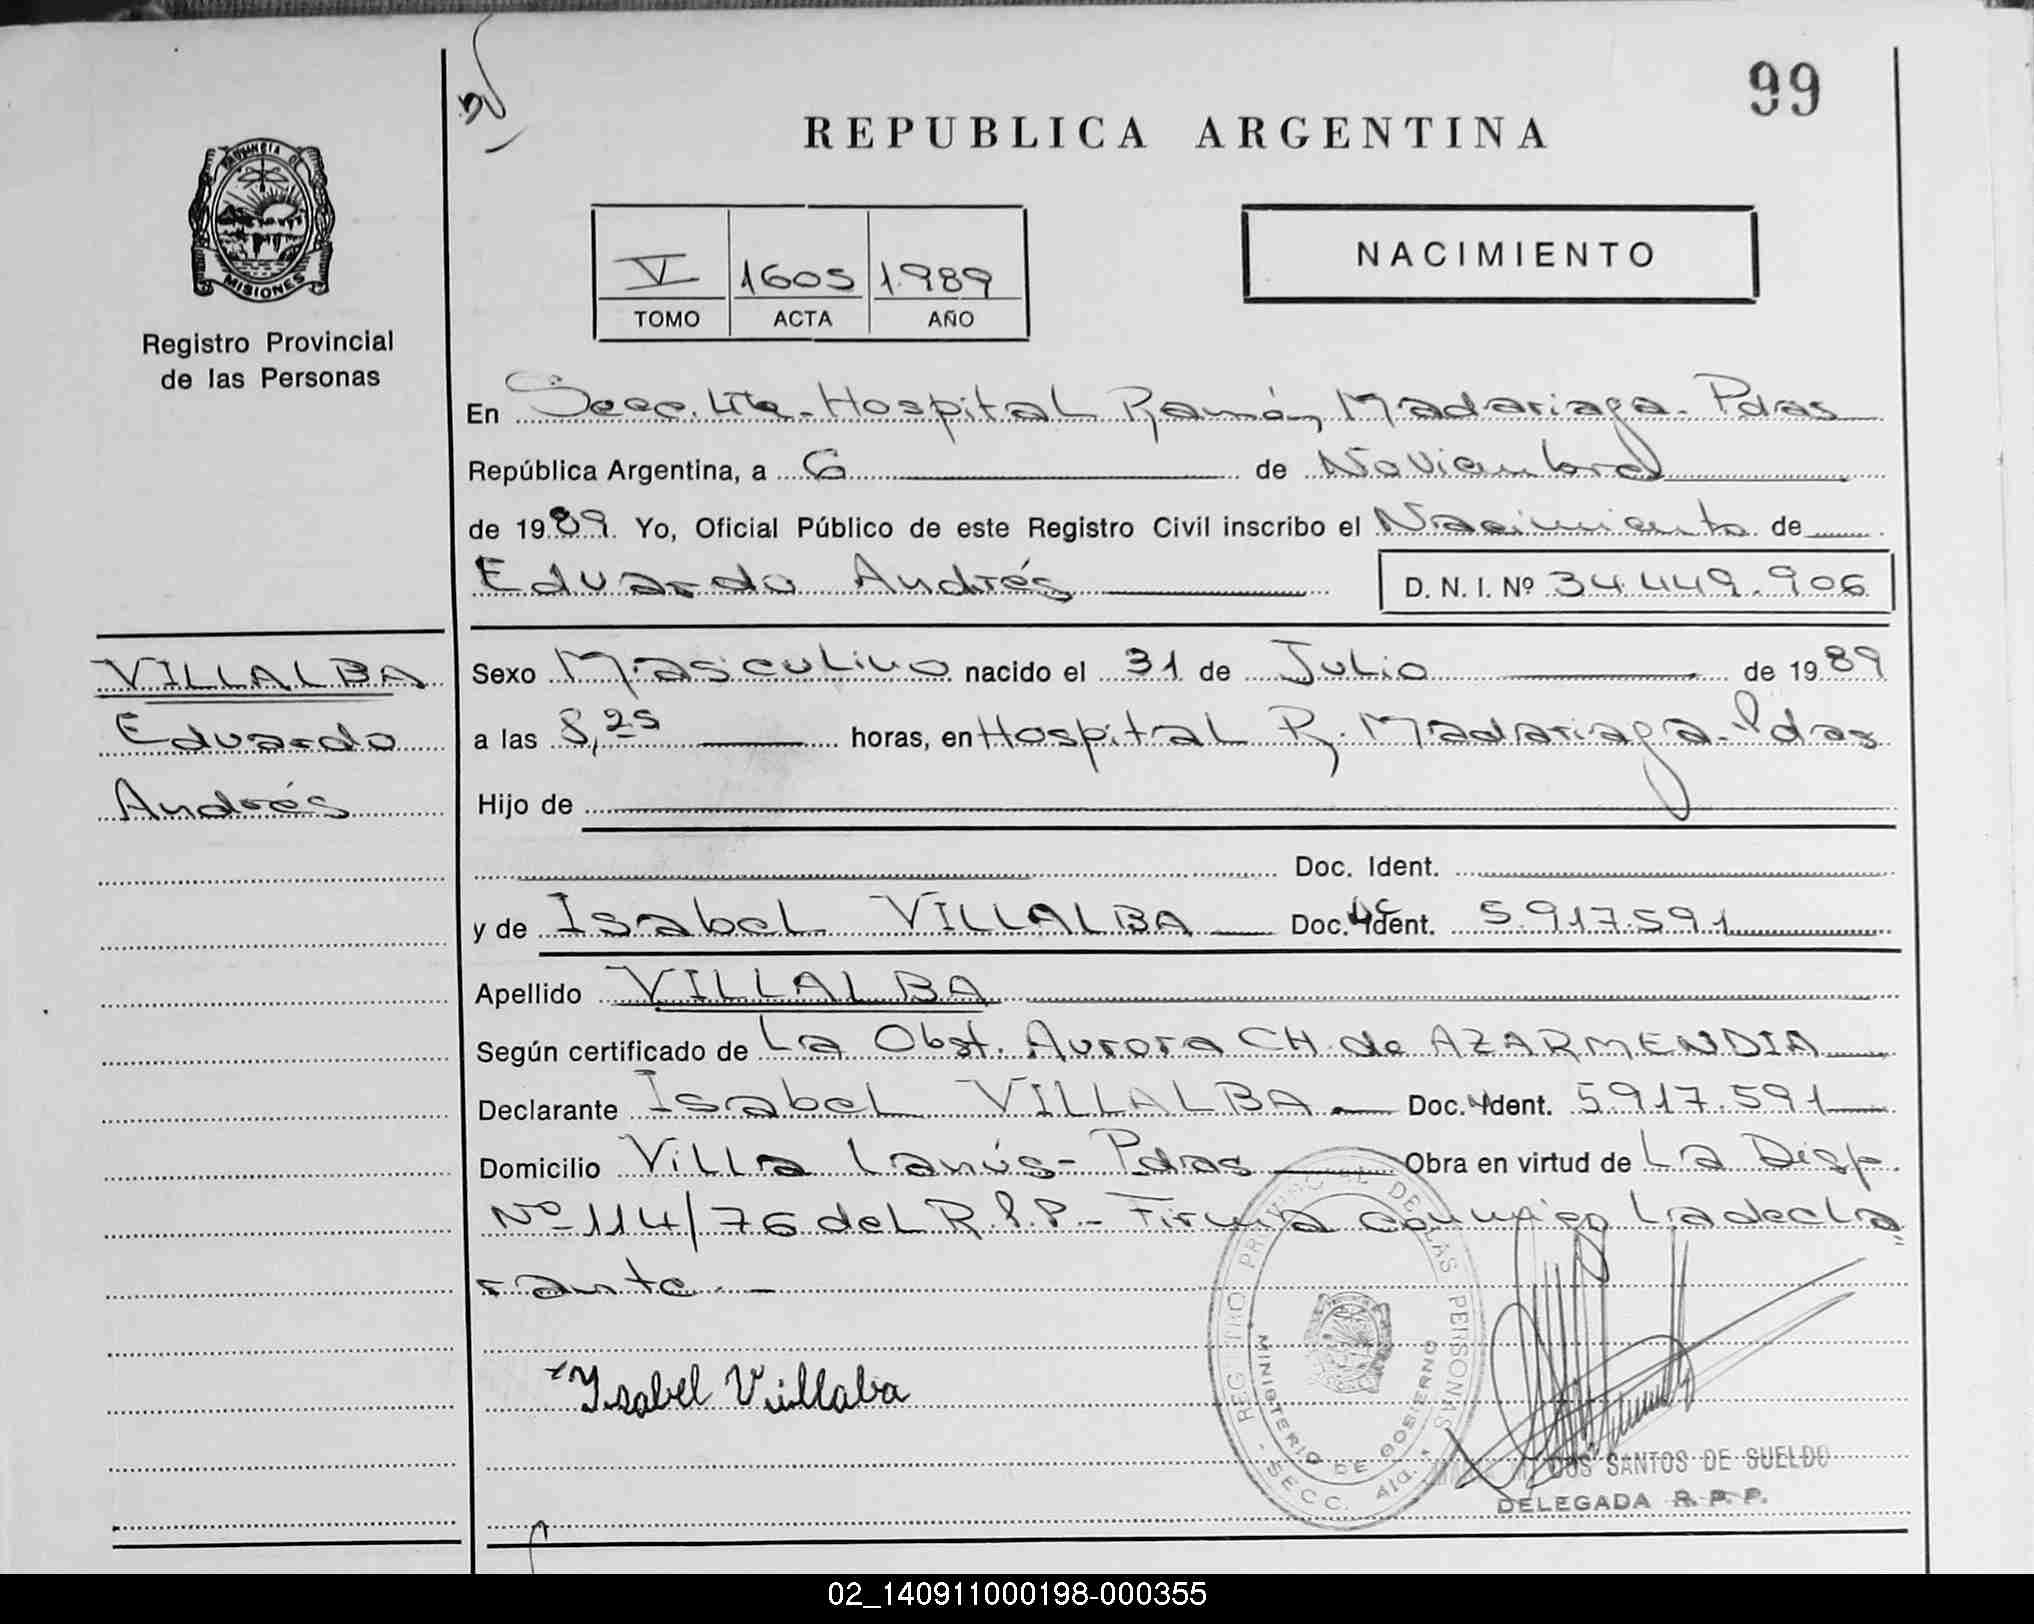 99
REPUBLICA ARGENTINA
PROVINCIA DE
MISIONES
Registro Provincial
de las Personas
V 1605 1.989
TOMO ACTA AÑO
NACIMIENTO
En Secc. 4ta. Hospital Ramón Madariaga. Pdas
República Argentina, a 6 de Noviembre
de 1989. Yo, Oficial Público de este Registro Civil inscribo el Nacimiento de
Eduardo Andrés D. N. I. Nº 34.449.906
VILLALBA
Eduardo
Andrés
Sexo Masculino nacido el 31 de Julio de 1989
a las 8,25 horas, en Hospital R. Madariaga. Pdas
Hijo de
Doc. Ident.
y de Isabel VILLALBA Doc. Ident. LC 5.917.591
Apellido VILLALBA
Según certificado de La Obst. Aurora CH. de AZARMENDIA
Declarante Isabel VILLALBA Doc. Ident. 5917.591
Domicilio Villa Lanús - Pdas Obra en virtud de La Disp.
Nº 114/76 del R.P.P. - Firma conmigo la decla
rante. -
Isabel Villalba
REGISTRO PROVINCIAL DE LAS PERSONAS
MINISTERIO DE GOBIERNO
- SECC. 4ta. -
DOS SANTOS DE SUELDO
DELEGADA R. P. P.
02_140911000198-000355